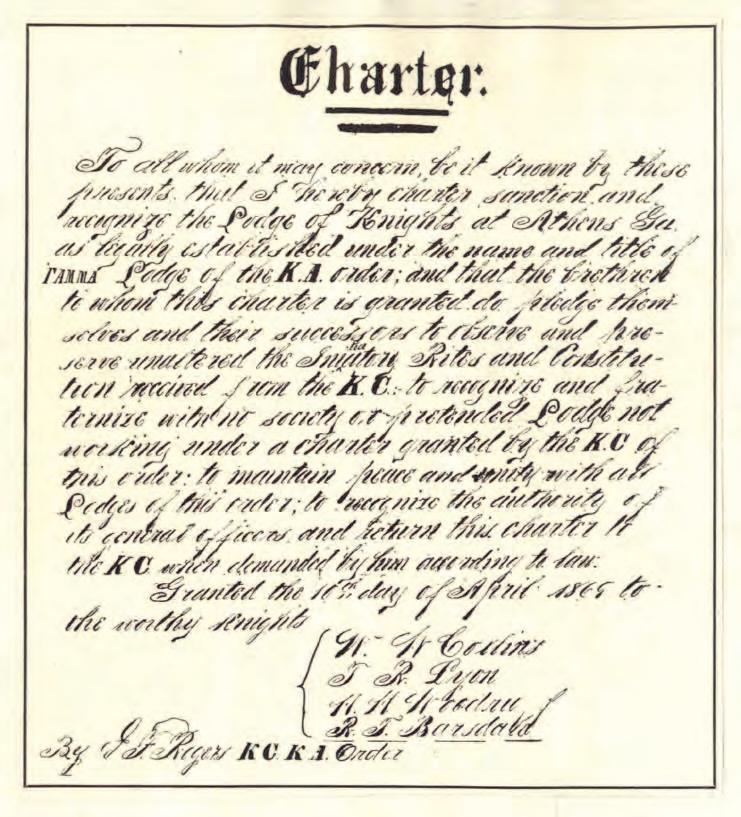 Charter.
To all whom it may concern, be it known by these
presents, that I hereby charter sanction and
recognize the Lodge of Knights at Athens Ga.
as legally established under the name and title of
ΓAMMA Lodge of the K.A. order; and that the brethren
to whom this charter is granted do pledge them-
selves and their successors to observe and pre-
serve unaltered the Initiatory Rites and Constitu-
tion received from the K.C.: to recognize and fra-
ternize with no society or pretended Lodge not
working under a charter granted by the K.C of
this order: to maintain peace and unity with all
Lodges of this order; to recognize the authority of
its general officers, and return this charter to
the KC when demanded by him according to law.
Granted the day of April to
the worthy Knights
W. W
T R. Lyon
Woodru f
R. T. Barsdale
By J F Rogers K C. K A. Order